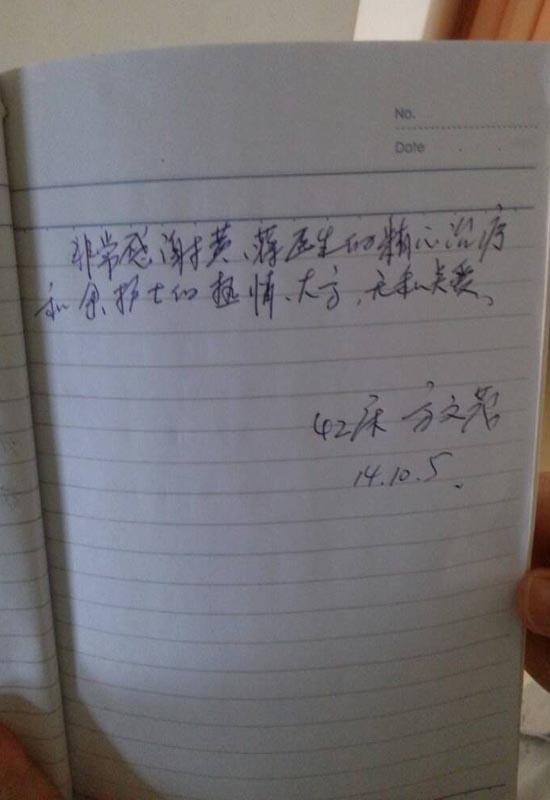 No.
Date
非常感谢黄、蒋医生的精心治疗
和余护士的热情、大方、无私关爱、
42床 方文
14.10.5、